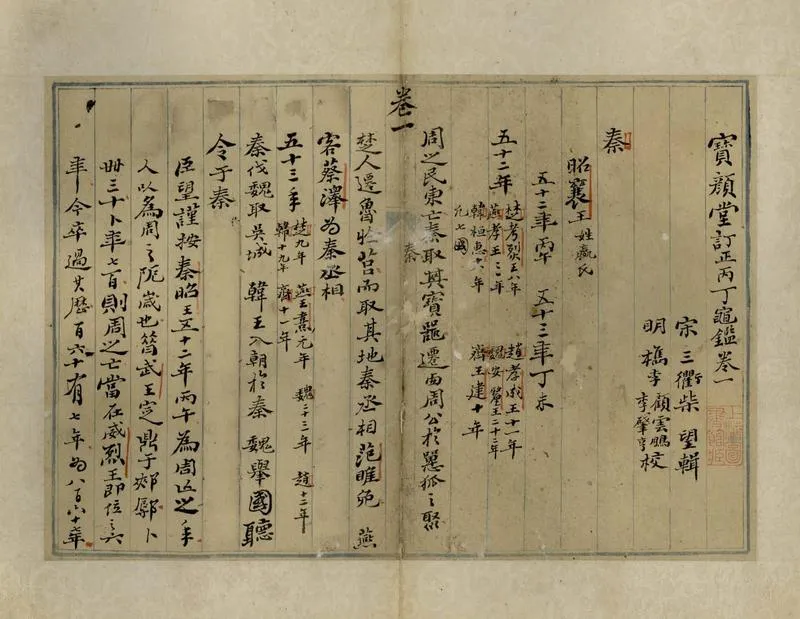 寶顏堂訂正丙丁龜鑑卷一
宋三衢柴望輯
明檇李顧雲鵬
李肇亨校
秦
昭襄王姓嬴氏
五十二年丙午 五十三年丁未
五十二年
楚考烈王八年 趙孝成王十一年
燕孝王三年 魏安釐王二十二年
韓桓惠十八年 齊王建十年
凡七國
周之民東亡秦取其寶器遷西周公於𢠸狐之聚
卷一
秦
楚人遷魯於莒而取其地秦丞相范睢免 燕
客蔡澤為秦丞相
五十三年
楚九年 燕王喜元年 魏二十三年 趙十二年
韓十九年 齊十一年
秦伐魏取吳城 韓王入朝於秦 魏舉國聽
令于秦
臣望謹按秦昭王五十二年丙午為周亡之年
人以為周之阨歲也筲武王定鼎于郟鄏卜
卅三十卜年七百則周之亡當在威烈王即位之六
年今卒過其歷百六十有七年為八百六十七年